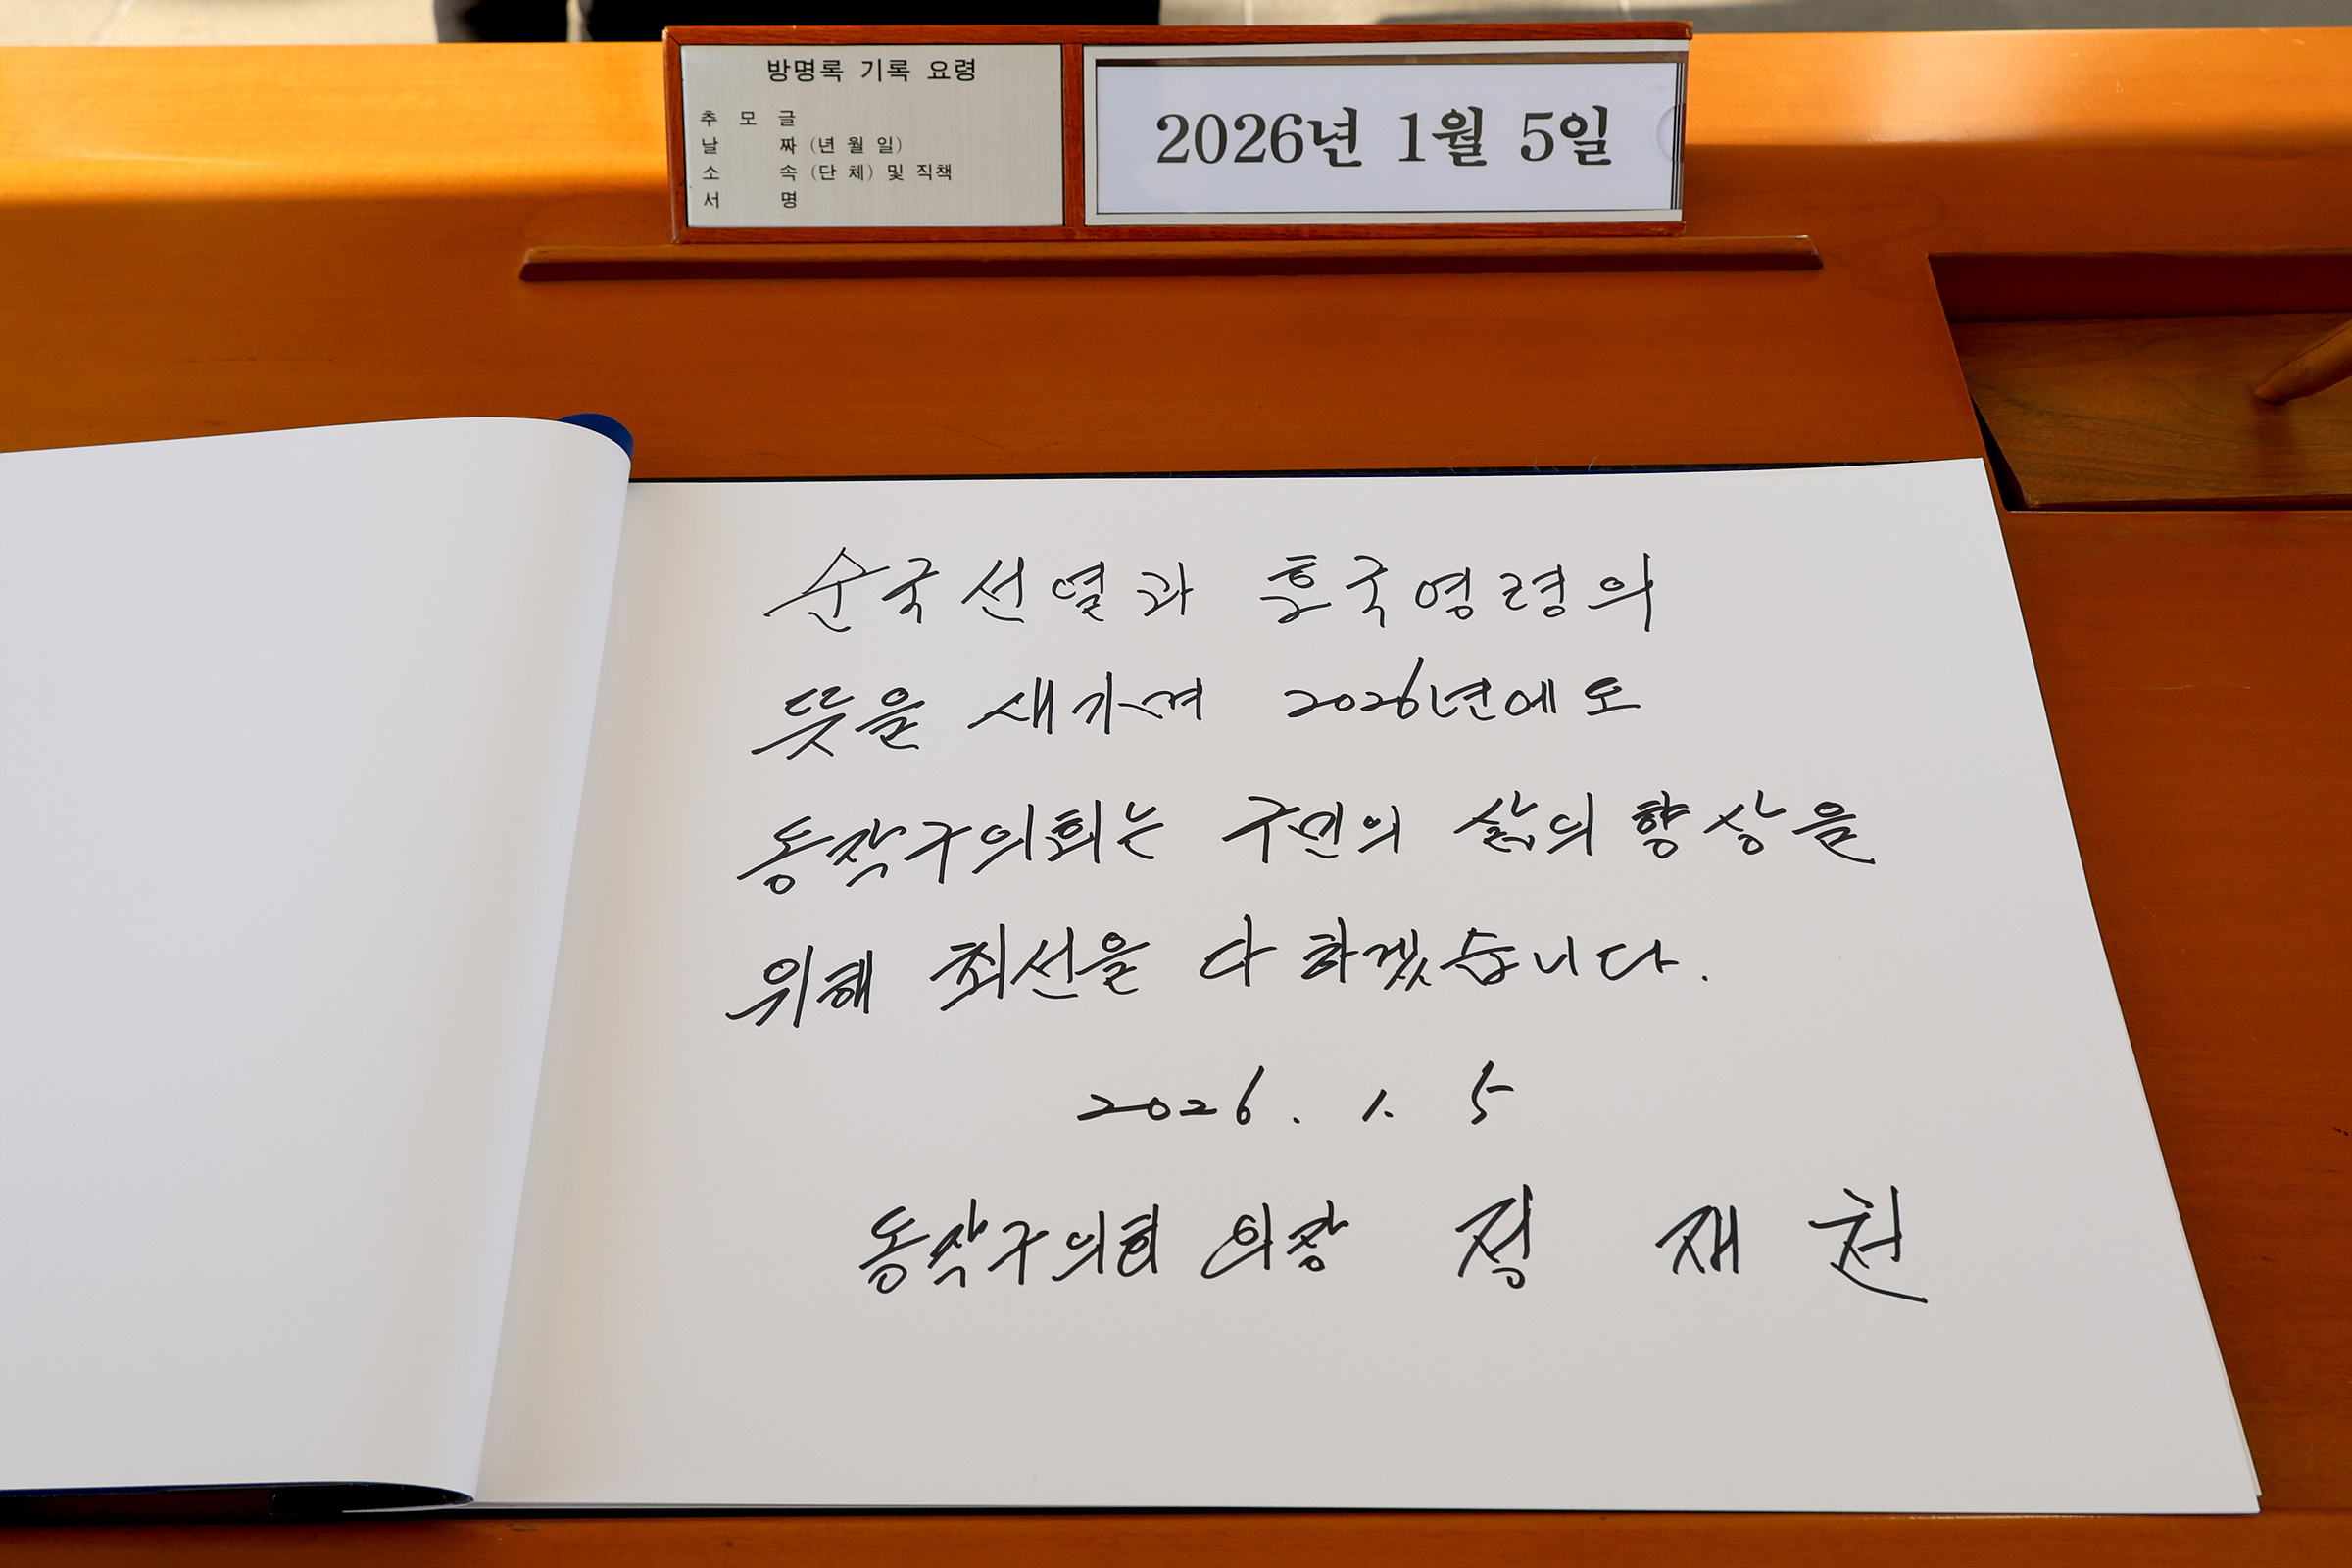 방명록 기록 요령
추 모 글
날 짜 (년 월 일)
소 속 (단 체) 및 직책
서 명
2026년 1월 5일
순국선열과 호국영령의
뜻을 새기며 2026년에도
동작구의회는 구민의 삶의 향상을
위해 최선을 다 하겠습니다.
2026. 1. 5
동작구의회 의장 정 재 천